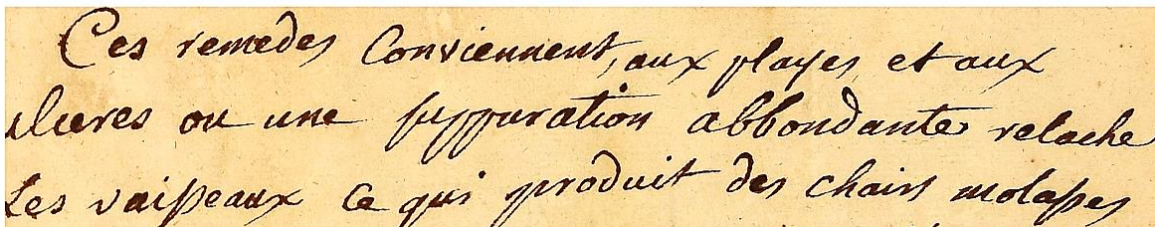 Ces remedes Conviennent, aux playes et aux
ulceres ou une suppuration abbondante relache
Les vaisseaux Ce qui produit des chairs molasses